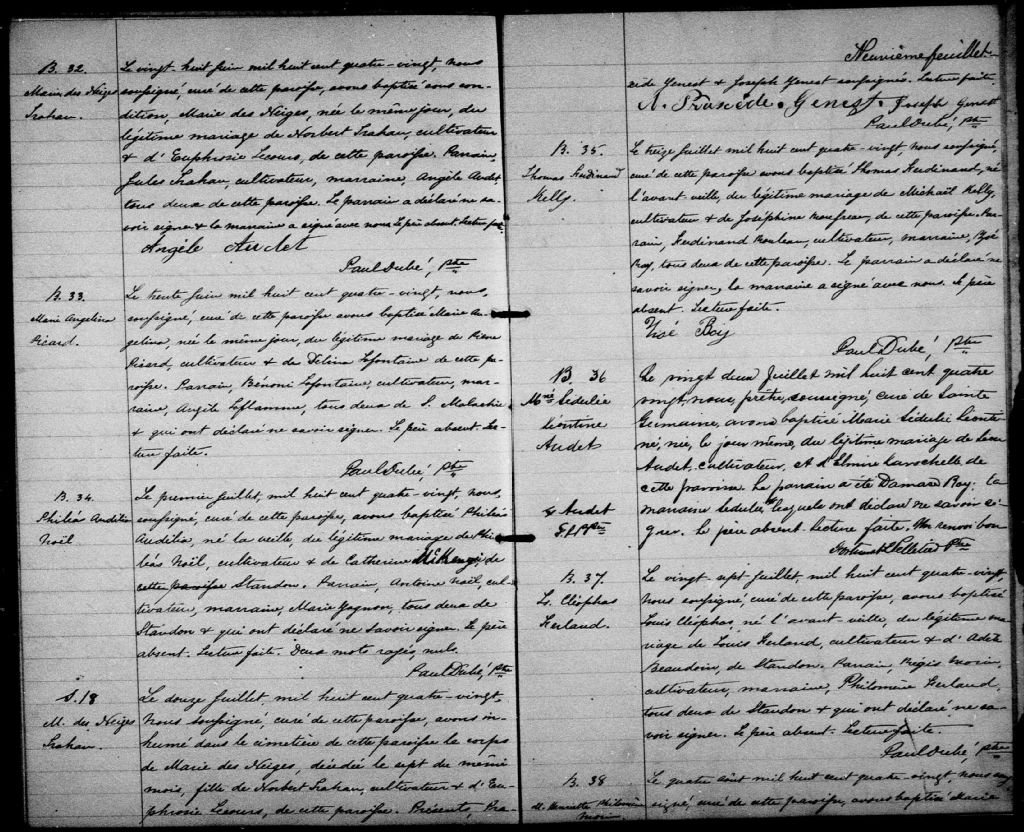 B. 32.
Marie des Neiges
Trahan.
Le vingt-huit Juin mil huit cent quatre-vingt, nous
soussigné, curé de cette paroisse, avons baptisé sous con-
dition, Marie des Neiges, née le même jour, du
légitime mariage de Norbert Trahan, cultivateur
& d'Euphrosie Lecours, de cette paroisse. Parrain,
Jules Trahan, cultivateur, marraine, Angèle Audet,
tous deux de cette paroisse. Le parrain a déclaré ne sa-
voir signer & la marraine a signé avec nous. Le père absent. Lecture faite.
Angèle Audet
Paul Dubé, Ptre
B. 33.
Marie Angelina
Picard.
Le trente Juin mil huit cent quatre-vingt, nous,
soussigné, curé de cette paroisse avons baptisé Marie An-
gelina, née le même jour, du légitime mariage de Pierre
Picard, cultivateur & de Délina Lafontaine de cette pa-
roisse. Parrain, Bénoni Lafontaine, cultivateur, mar-
raine, Angèle Laflamme, tous deux de S. Malachie
& qui ont déclaré ne savoir signer. Le père absent. Lec-
ture faite.
Paul Dubé, Ptre
B. 34.
Philéas Audélia
Noël
Le premier Juillet, mil huit cent quatre-vingt, nous,
soussigné, curé de cette paroisse, avons baptisé Philéas
Audélia, né la veille, du légitime mariage de Phi-
léas Noël, cultivateur & de Catherine McKenzi, de
cette paroisse Standon. Parrain, Antoine Noël, cul-
tivateur, marraine, Marie Gagnon, tous deux de
Standon & qui ont déclaré ne savoir signer. Le père
absent. Lecture faite. Deux mots rayés nuls.
Paul Dubé, Ptre
S. 18
M. des Neiges
Trahan.
Le douze Juillet, mil huit cent quatre-vingt,
Nous soussigné, curé de cette paroisse, avons in-
humé dans le cimetière de cette paroisse le corps
de Marie des Neiges, décédée le sept du même
mois, fille de Norbert Trahan, cultivateur & d'Eu-
phrosie Lecours, de cette paroisse. Présents, Pra-
Neuvième feuillet
xède Genest & Joseph Genest soussignés. Lecture faite.
A. Praxède Genest. Joseph Genest
Paul Dubé, Ptre
B. 35.
Thomas Ferdinand
Kelly.
Le treize Juillet mil huit cent quatre-vingt, nous soussigné,
curé de cette paroisse avons baptisé Thomas Ferdinand, né
l'avant veille, du légitime mariage de Michaël Kelly,
cultivateur & de Joséphine de cette paroisse. Par-
rain, Ferdinand Rouleau, cultivateur, marraine, Zoé
Roy, tous deux de cette paroisse. Le parrain a déclaré ne
savoir signer, la marraine a signé avec nous. Le père
absent. Lecture faite.
Zoé Roy
Paul Dubé, Ptre
B. 36
Mie Sédulie
Léontine
Audet
Le vingt deux Juillet mil huit cent quatre
vingt, nous, prêtre, soussigné, curé de Sainte
Germaine, avons baptisé Marie Sédulie Léonti-
ne, née, le jour même, du légitime mariage de Léon
Audet, cultivateur, et d'Elmire Larochelle de
cette paroisse. Le parrain a été Damase Roy, la
marraine Sédulie, lesquels ont déclaré ne savoir si-
gner. Le père absent. Lecture faite. Un renvoi bon
& Audet
Pelletier Ptre
B. 37.
Ls. Cléophas
Ferland.
Le vingt-sept Juillet, mil huit cent quatre-vingt,
Nous soussigné, curé de cette paroisse, avons baptisé
Louis Cléophas, né l'avant veille, du légitime ma-
riage de Louis Ferland, cultivateur & d'Adèle
Beaudoin, de Standon. Parrain, Régis Morin,
cultivateur, marraine, Philomène Ferland,
tous deux de Standon & qui ont déclaré ne sa-
voir signer. Le père absent. Lecture faite.
Paul Dubé, Ptre
B. 38
M. Philomène
Morin
Le quatre août mil huit cent quatre-vingt, nous sous-
signé, curé de cette paroisse, avons baptisé Marie